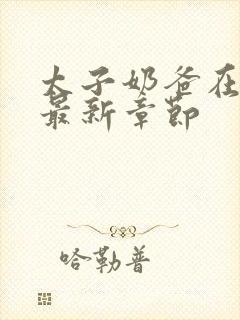 太子奶爸在
最新章节
哈勒普